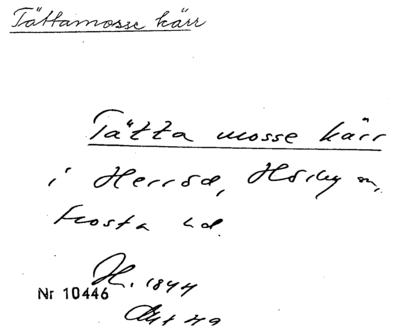 Tättamosse kärr
Tätta mosse kärr
i Herröd, Hörby sn,
Frosta hd.
H. 1844
Nr 10446
Akt 49